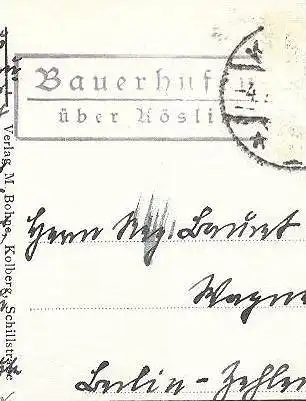 Bauerhuf
über Kösli
Verlag M. Bohne, Kolberg, Schillstraße
Herrn Reg. Baurat
Wagn
Berlin-Zehlen